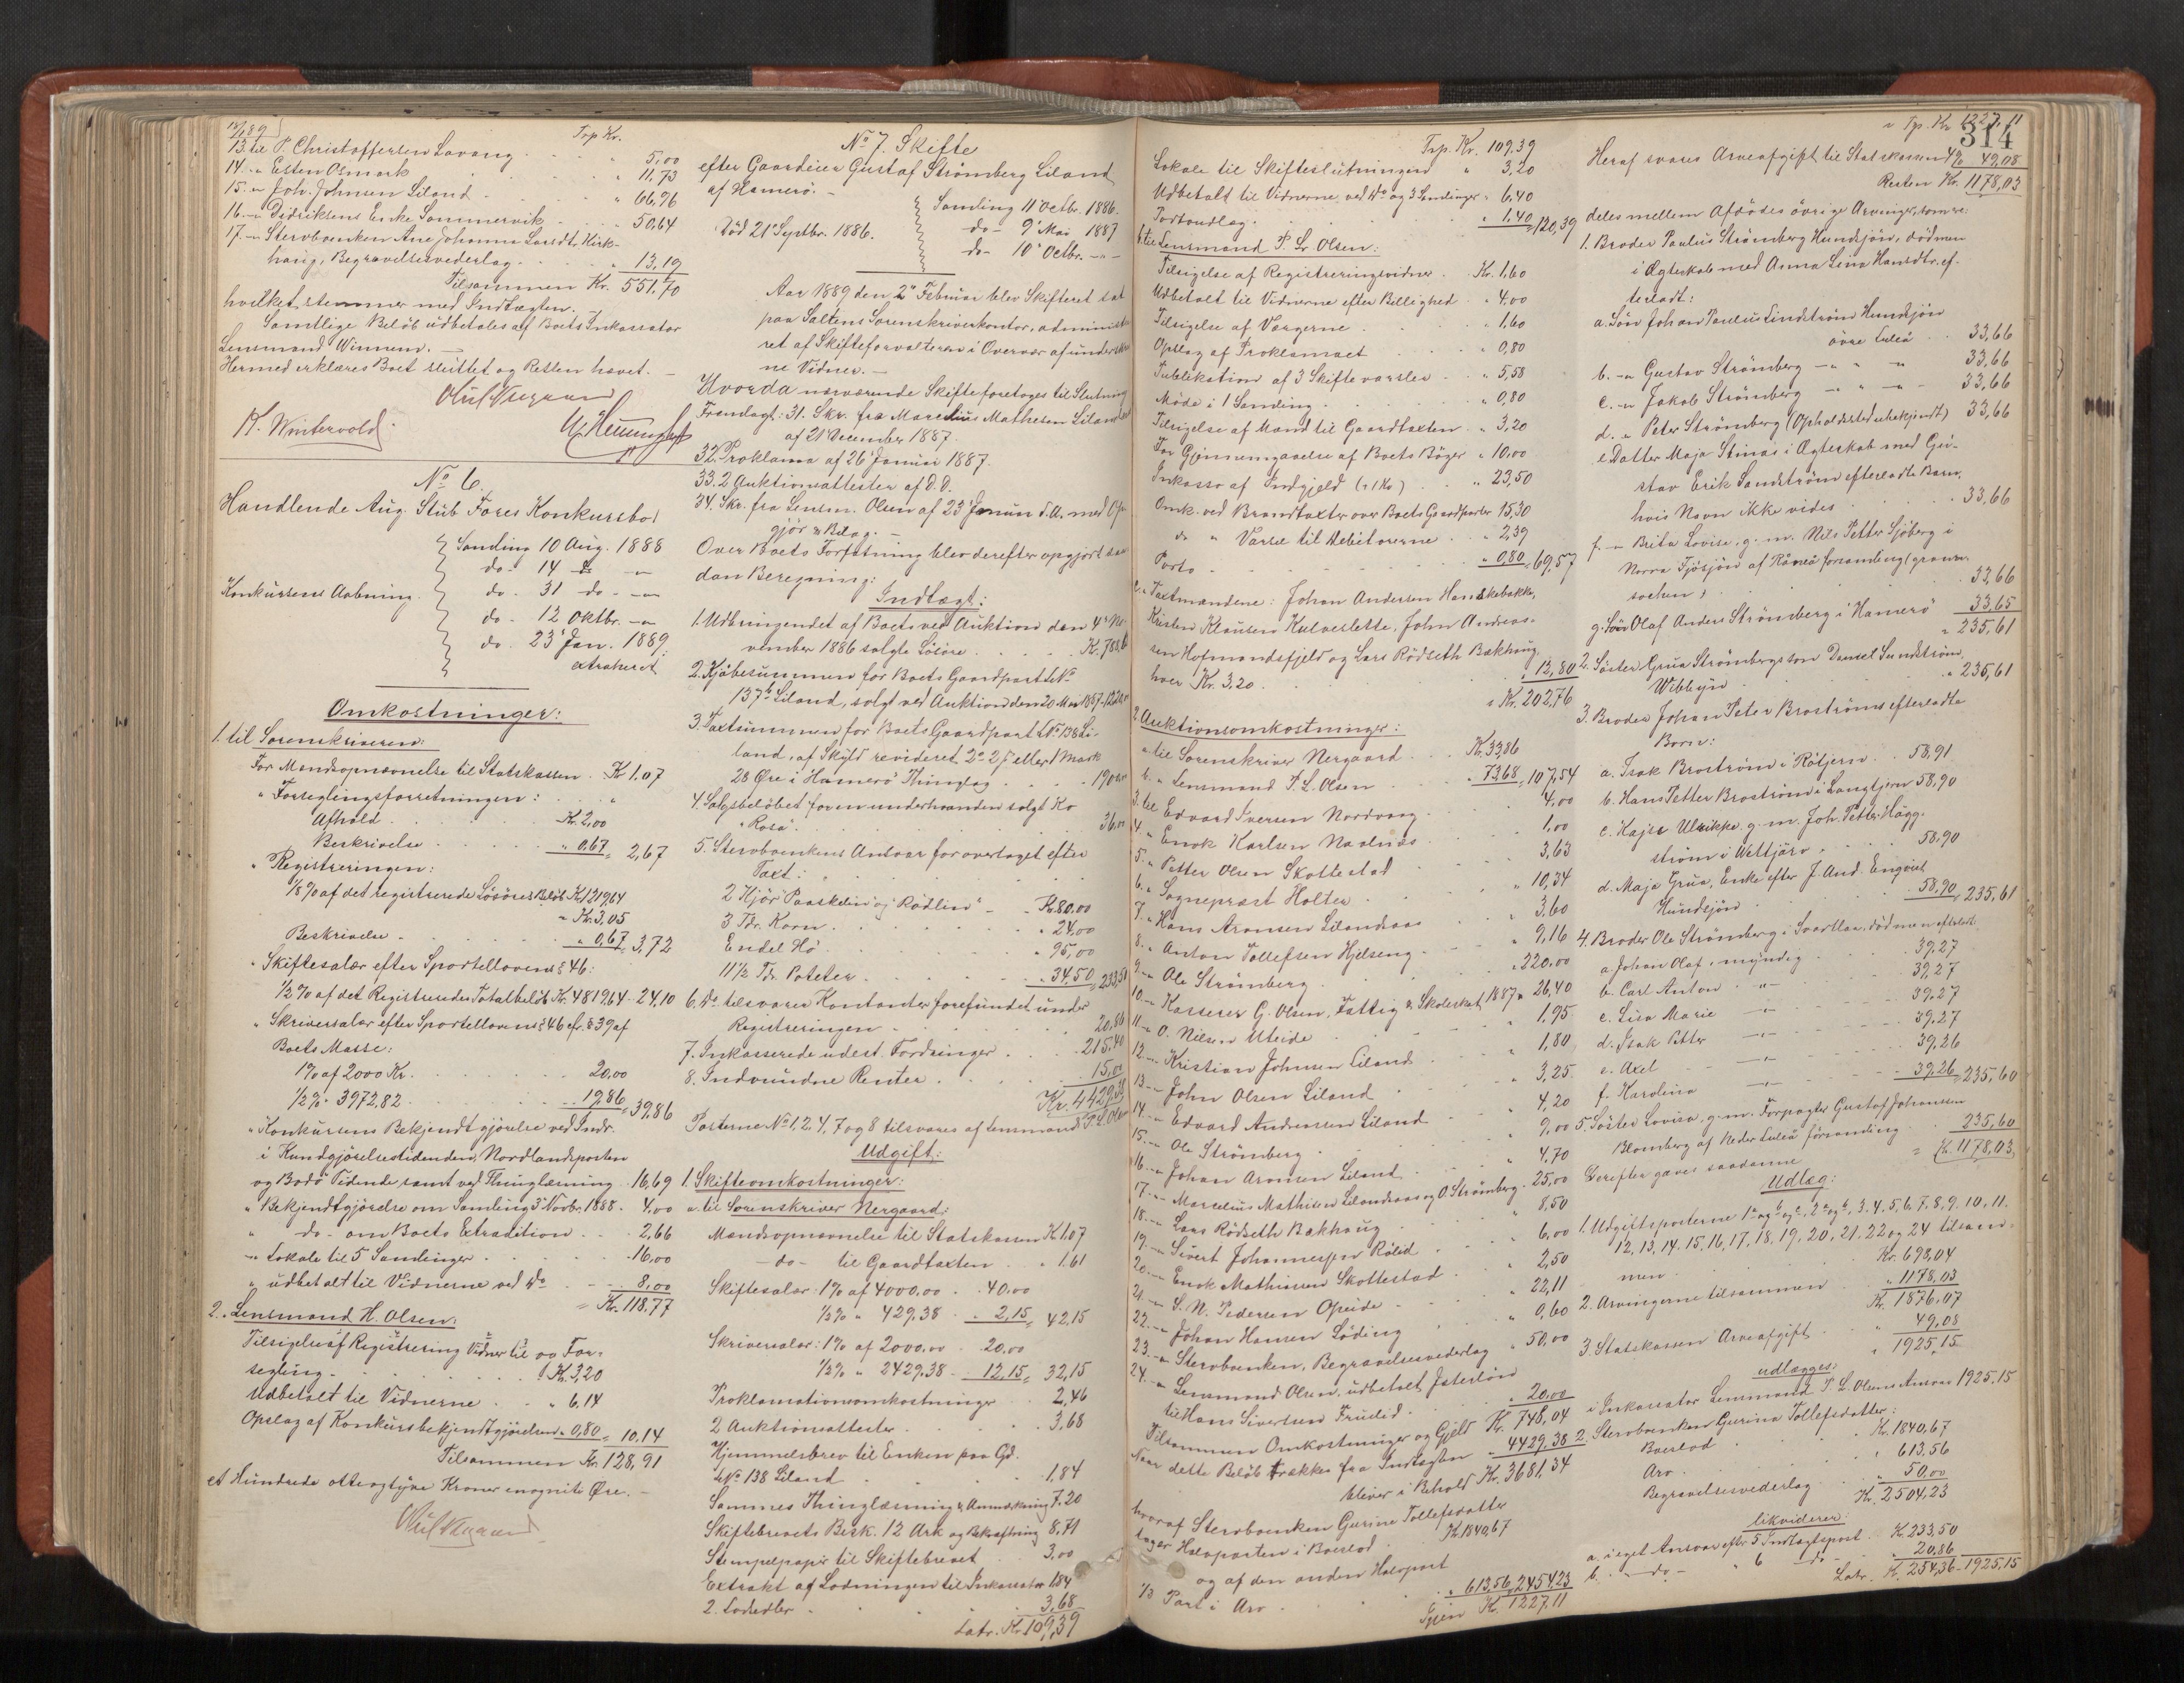 Trp Kr.
13. til P. Christoffersen Lavang " 5,00
14. " Esten Osmark " 11,73
15. " Joh. Johnsen Liland " 66,96
16. " Didriksens Enke Sommervik " 50,64
17. " Stervboenken Ane Johanna Larsdt. Kirk-
haug, Begravelsesvederlag " 13,19
Tilsammen Kr. 551,70
hvilket stemmer med Indtægten.
Samtlige Beløb udbetales af Boets Inkassator
Lensmand Winnem. —
Hermed erklæres Boet sluttet og Retten hævet. —
K. Wintervold.
No 6.
Handlende Aug. Stub Fores Konkursbo
Konkursens Aabning.
Samling 10 Aug. 1888
do - 14 do -"
do - 31 do -"
do - 12 Oktbr. -"
do - 23 Jan. 1889
extraheret
Omkostninger:
1. til Sorenskriveren:
For Mandsopnævnelse til Statskassen Kr 1.07
" Forseglingsforretningen:
Afhold Kr. 2,00
Beskrivelse " 0,67 = 2,67
" Registreringen:
1/8 % af det registrerede Løsøres Beløb Kr. 1219,64
= Kr. 3,05
Beskrivelse - " 0,67 = 3,72
" Skiftesalær efter Sportellovens § 46:
1/2 % af det Registrerede Totalbeløb Kr. 4819,64 - 24,10
" Skriversalær efter Sportellovens § 46 cf. § 39 af
Boets Masse:
1 % af 2000 Kr. 20,00
1/2 % " 3972,82 19,86 = 39,86
" Konkursens Bekjendtgjørelse ved Indr.
i Kundgjørelsestidenden, Nordlandsposten
og Bodø Tidende samt ved Thinglæsning 16,69
" Bekjendtgjørelse om Samling 3 Novbr. 1888 - 4,00
" do - om Boets Extradition 2,66
" Lokale til 5 Samlinger 16,00
" udbetalt til Vidnerne ved Do 8,00
= Kr. 118,77
2. Lensmand H. Olsen:
Tilsigelse af Registrering Vidner til og For-
segling Kr. 3,20
Udbetalt til Vidnerne " 6,14
Opslag af Konkursbekjendtgjørelsen " 0,80 = 10,14
Tilsammen Kr. 128,91
et Hundrede otteogtyve Kroner enognitti Øre. —
No 7. Skifte
efter Gaardeier Gustaf Strømberg Liland
af Hamerø. —
Død 21 Septbr. 1886.
Samling 11 Octbr. 1886.
do - 9 Mai 1887
do - 10 Octbr. - " -
Aar 1889 den 2 Februar blev Skifteret sat
paa Saltens Sorenskriverkontor, administ-
ret af Skifteforvalteren i Overvær af underskr.
ne Vidner. —
Hvorda nærværende Skifte foretoges til Slutning
Fremlagt: 31. Skr. fra Marcelius Mathesen Lilandsaas
af 21 December 1887.
32. Proklama af 26 Januar 1887.
33. 2 Auktionsattester af D.D.
34. Skr. fra Lensm. Olsen af 23 Januar d. A. med Op-
gjør & Bilag. —
Over Boets Forfatning blev derefter opgjort saa-
dan Beregning:
Indtægt:
1. Udbringendet af Boets ved Auktion den 4 No-
vember 1886 solgte Løsøre
2. Kjøbesummen for Boets Gaardpart L No
137 b Liland, solgt ved Auktion den 20 Mai 1887
3. Taxtsummen for Boets Gaardpart L No 138 Li-
land, af Skyld revideret 2 - 27 eller 1 Mark
28 Øre i Hamerø Thinglag
4. Salgsbeløbet for en underhaanden solgt Ko
"Rosa" 36,00
5. Stervboenkens Ansvar for overtaget efter
Taxt:
2 Kjør "Paaskelin" og "Rødlin" - Kr. 80,00
3 Tdr. Korn " 24,00
En del Hø " 95,00
11 1/2 Tdr. Poteter " 34,50 = 233,50
6. Do tilsvarer Kontanter forefundet under
Registreringen 20,86
7. Inkasserede udest. Fordringer 215,40
8. Indvundne Renter 15,00
Kr. 4429,38
Posterne No 1, 2, 4, 7 og 8 tilsvares af Lensmand P. L. Olsen
Udgift:
1. Skifteomkostninger:
a. til Sorenskriver Nergaard:
Mandsopnævnelse til Statskassen Kr. 1.07
- do - til Gaardtaxten " 1.61
Skiftesalær: 1 % af 4000,00 40,00
1/2 % " 429,38 2,15 = 42,15
Skriversalær: 1 % af 2000,00 20,00
1/2 % " 2429,38 12,15 = 32,15
Proklamationsomkostninger 2,46
2 Auktionsattester 3,68
Hjemmelsbrev til Enken paa Gd.
L No 138 Liland 1,84
Sammes Thinglæsning & Anmærkning 7,20
Skiftebrevets Besk. 12 Ark og Bekræftning 8,71
Stempelpapir til Skiftebrevet 3,00
Extrakt af Lodningen til Inkassator 1,84
2. Lodsedler 3,68
Latr. Kr. 109,39
Trp. Kr. 109,39
Lokale til Skifteslutningen " 3,20
Udbetalt til Vidnerne ved Do og 3 Samlinger " 6,40
Portoudlæg " 1,40 = 120,39
b. til Lensmand P. L. Olsen:
Tilsigelse af Registreringsvidner Kr. 1,60
Udbetalt til Vidnerne efter Billighed " 4,00
Tilsigelse af Værgerne " 1,60
Opslag af Proklamaet " 0,80
Publikation af 3 Skiftevarsler " 5,58
Møde i 1 Samling " 0,80
Tilsigelse af Mænd til Gaardtaxten " 3,20
For Gjennemgaaelse af Boets Bøger " 10,00
Inkasso af Indgjeld " 23,50
Omk. ved Brandtaxter over Boets Gaardparter 15,30
do " Varsel til Debitorerne " 2,39
Porto " 0,80 = 69,57
c. Taxtmændene: Johan Andersen Hanskebakke,
Kristen Klausens Kalveslette, John Andreas-
sen Hofmandsfjeld og Lars Rødseth Bakhaug
hver Kr. 3.20 12,80
= Kr. 202,76
2. Auktionsomkostninger:
a. til Sorenskriver Nergaard Kr. 33,86
b. " Lensmand P. L. Olsen " 73,68 = 107,54
3. til Edvard Iversen Nordvaag 4,00
4. " Enok Karlsen Naalnæs 1,00
5. " Petter Olsen Skottestad 3,63
6. " Sognepræst Holter " 10,34
7. " Hans Aronsen Lilandsaas " 3,60
8. " Anton Tollefsen Hjelseng " 9,16
9. " Ole Strømberg " 220,00
10. " Kasserer G. Olsen, Fattig & Skoleskat 1887 " 26,40
11. " O. Nilsen Uteide " 1,95
12. " Kristian Johnsen Liland " 1,80
13. " John Olsen Liland " 3,25
14. " Edvard Andreassen Liland " 4,20
15. " Ole Strømberg " 9,00
16. " Johan Aronsen Liland " 4,70
17. " Marcelius Mathisen Lilandsaas og O. Strømberg " 25,00
18. " Lars Rødseth Bakhaug " 8,50
19. " Sivert Johannessen Rølid " 6,00
20. " Enok Mathiesen Skottestad " 2,50
21. " S. N. Pedersen Opeide " 22,11
22. " Johan Hansen Løding " 0,60
23. " Stervboenken, Begravelsesvederlag " 50,00
24. " Lensmand Olsen, udbetalt Jsterløn
til Hans Sivertsen Fruelid " 20,00
Tilsammen Omkostninger og Gjeld Kr. 748,04
Naar dette Beløb trækkes fra Indtægten " 4429,38
bliver i Behold Kr. 3681,34
hvoraf Stervboenken Gurine Tollefsdatter
tager Halvparten i Boeslod Kr. 1840,67
og af den anden Halvpart
1/3 Part i Arv " 613,56 = 2454,23
Igjen Kr. 1227,11
314
" Tp. Kr. 1227,11
Heraf svares Arveafgift til Statskassen 4 % 49,08
Resten Kr. 1178,03
deles mellem Afdødes øvrige Arvinger, som re:
1. Broder Paulus Strømberg Hundsjøn, død men
i Ægteskab med Anna Lina Hansdtr. ef-
terladt:
a. Søn Johan Paulus Lindstrøm Hundsjøn
øvre Luleå 33,66
b. - " Gustav Strømberg - " - " 33,66
c. - " Jakob Strømberg - " - " - 33,66
d. " Peter Strømberg (Opholdssted ubekjendt) 33,66
e. Datter Maja Stinas i Ægteskab med Gu-
stav Erik Sandstrøm efterladte Barn,
hvis Navn ikke vides " 33,66
f. - " Brita Lovise, g. m. Nils Petter Sjøberg i
Norra Fjøsjøn af Råneå forsamling (granne
sochen) 33,66
g. Søn Olaf Anders Strømberg i Hamerø 33,65
" 235,61
2. Søster Grua Strømbergs søn Daniel Sundstrøm
Wibbyn " 235,61
3. Broder Johan Peter Brostrøms efterladte
Børn:
a. Isak Brostrøm i Råtjern 58,91
b. Hans Petter Brostrøm i Langtjern 58,90
c. Kajsa Ulrikke g. m. Joh. Petter Hægg-
strøm i Wettjärv 58,90
d. Maja Grua, Enke efter J. And. Enqvist
Hundsjøn 58,90 = 235,61
4. Broder Ole Strømberg i Svartlaa, død men efterladt
a. Johan Olaf, myndig 39,27
b. Carl Anton - " - 39,27
c. Lisa Marie - " - 39,27
d. Isak Petter - " - 39,27
e. Axel - " - 39,26
f. Karolina - " - 39,26 = 235,60
5. Søster Lovisa, g. m. Forpagter Gustaf Johanssen
Blomberg af Neder Luleå församling 235,60
= Kr. 1178,03
Derefter gaves saadanne
Udlæg:
1. Udgiftsposterne 1 a og b og c, 2 a og b, 3. 4. 5. 6. 7. 8. 9. 10. 11.
12, 13, 14. 15, 16, 17. 18. 19, 20, 21. 22 og 24 tilsam-
men Kr. 698,04
2. Arvingerne tilsammen " 1178,03
Kr. 1876,07
3. Statskassen Arveafgift " 49,08
" 1925,15
udlægges:
i Inkassator Lensmand P. L. Olsens Ansvar 1925,15
2. Stervboenken Gurina Tollefsdatter:
Boeslod Kr. 1840,67
Arv " 613,56
Begravelsesvederlag " 50,00
Kr. 2504,23
likviderer:
a. i eget Ansvar efter 5 Indtægtspost Kr. 233,50
b. " - do - " 6 do - 20,86
Latr. Kr. 254,36 - 1925,15